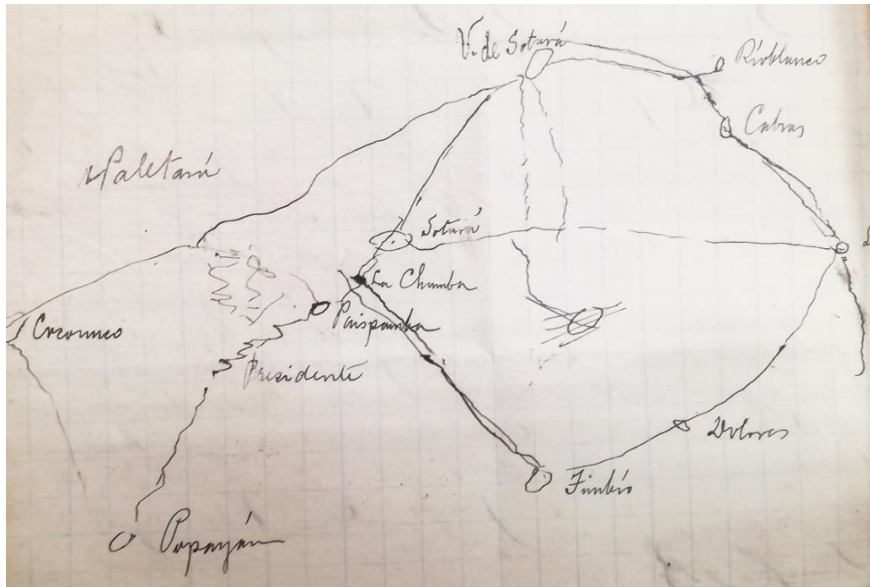 V. de Sotará
Rioblanco
Cabras
Paletará
Sotará
La Chumba
Paispamba
Coconuco
Presidente
Dolores
Timbío
Popayán